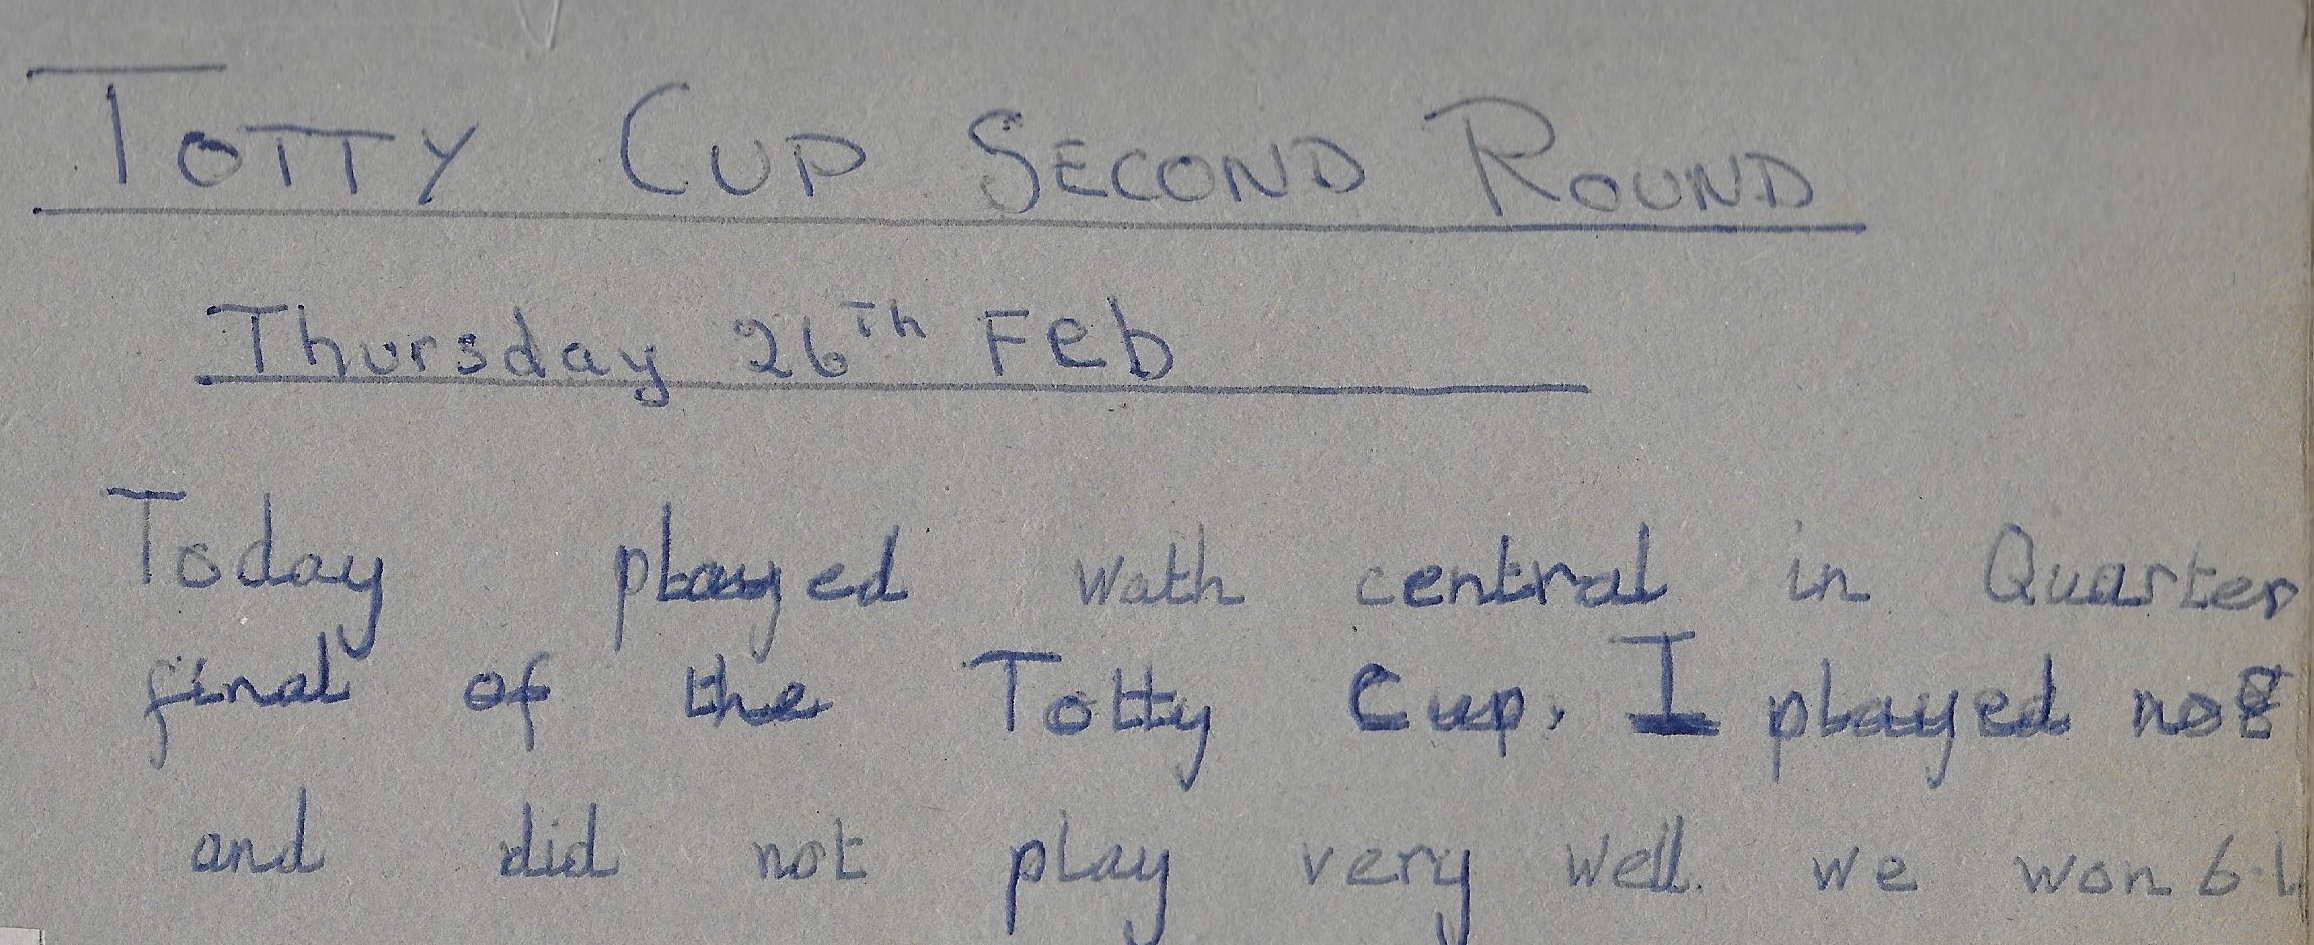 TOTTY CUP SECOND ROUND
Thursday 26Th Feb
Today played Wath central in Quarter
final of the Totty Cup. I played no 8
and did not play very well. we won 6.1.